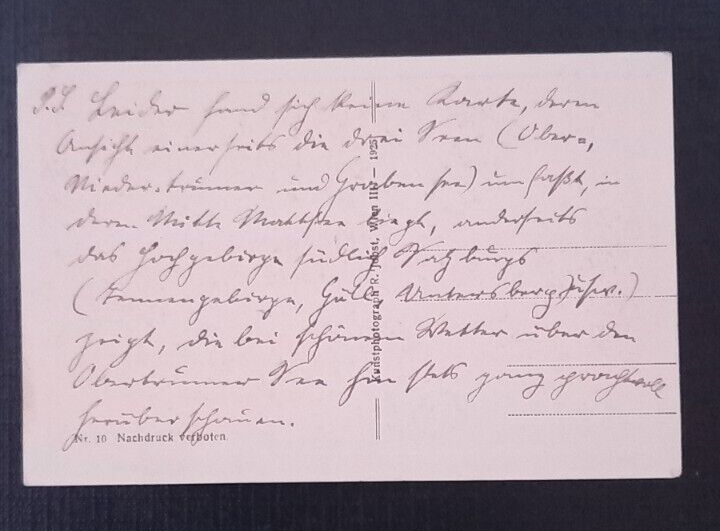 P.S. Leider fand sich keine Karte, deren
Ansicht einerseits die drei Seen (Ober-,
Nieder-trumer und Grabensee) umfaßt, in
deren Mitte Mattsee liegt, anderseits
das Hochgebirge südlich Salzburgs
(Tennengebirge, Göll, Untersberg usw.)
zeigt, die bei schönem Wetter über den
Obertrumer See hin stets ganz prachtvoll
herüberschauen.
Nr. 10 Nachdruck verboten.
Kunstphotograph R. Jobst, Wien III/1 — 1925